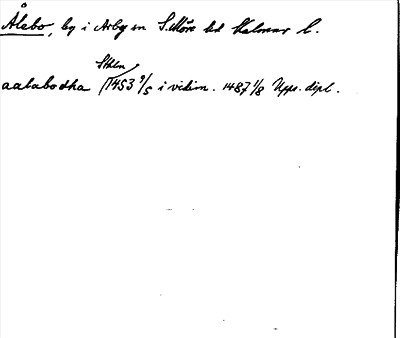 Ålabo, by i Arby sn S. Möre hd Kalmar l.
Sthlm
aalabodha 1453 9/5 i vidim. 1487 1/8 Upps. dipl.